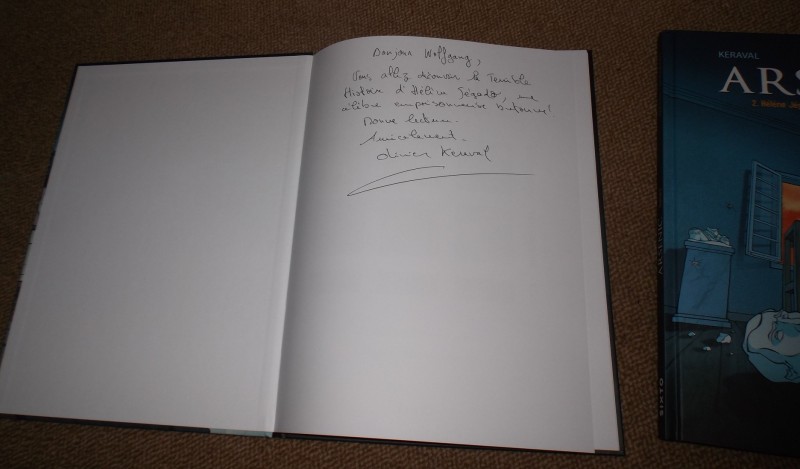 Bonjour Wolfgang,
Vous allez découvrir la Terrible
Histoire d'Hélène Jégado, une
célèbre empoisonneuse bretonne!
Bonne lecture.
Amicalement.
Olivier Keraval
KERAVAL
ARS
2. Hélène Jé
SIXTO